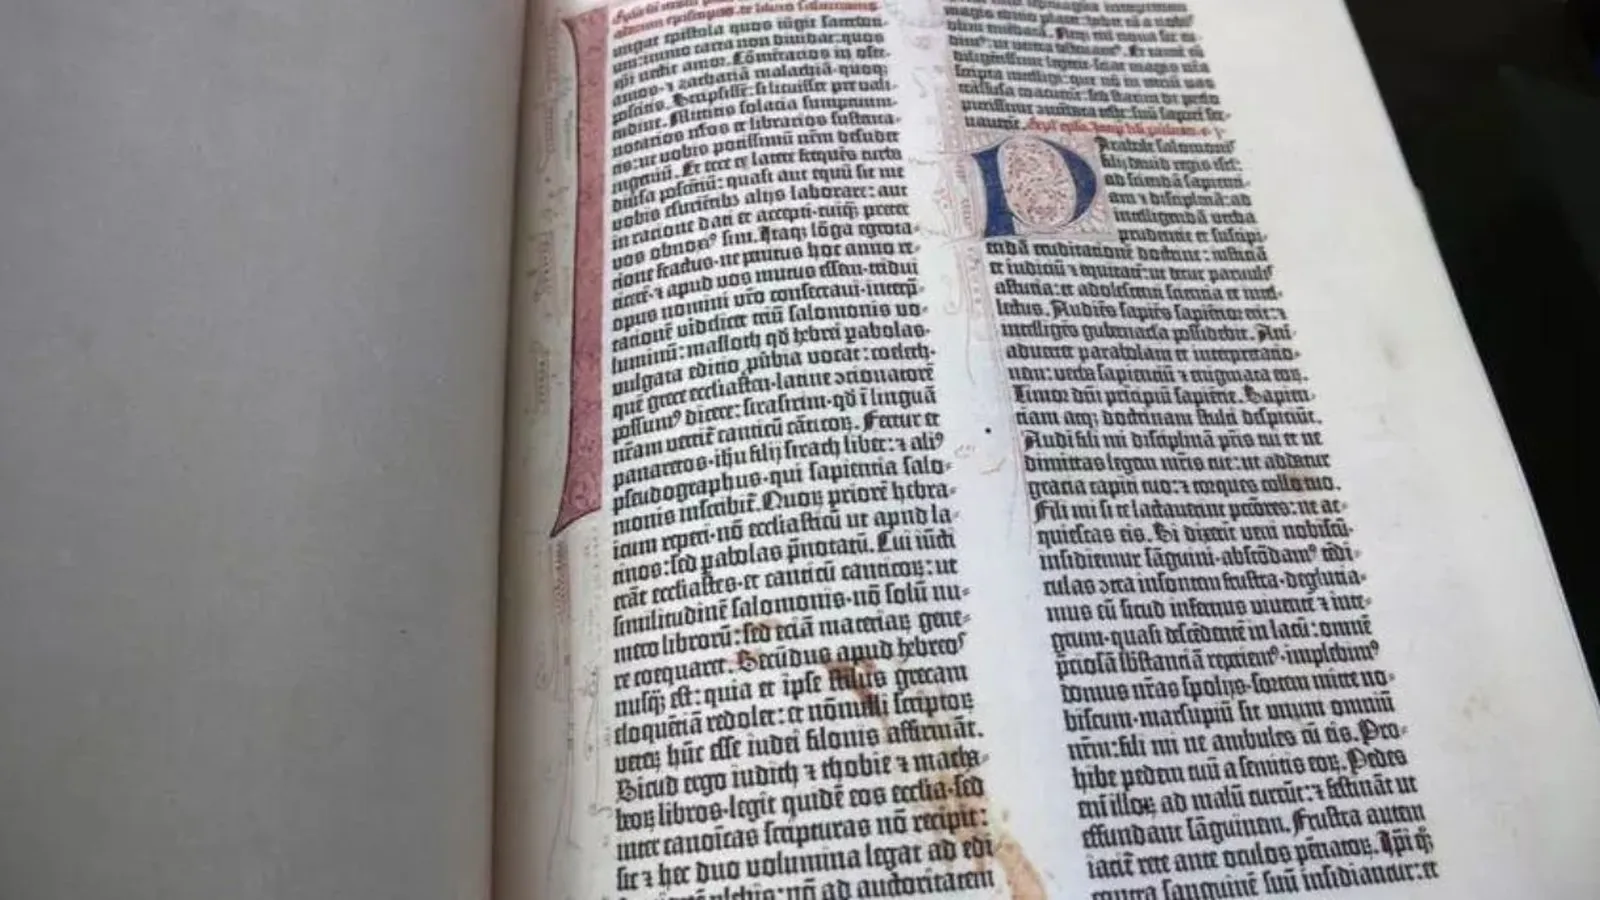 aliodorum episcopos de libris salomonis
Iungat epistola quos iūgit sacerdo-
tium: immo carta non dividat: quos
xp̄i nectit amor. Cōmētarios in osee·
amos· ⁊ zachariā malachiā· quoqꝫ
poscitis. Scripsissē: si licuisset pre vali-
tudine. Mittitis solacia sumptuum·
notarios nr̄os et librarios sustenta-
tis: ut vobis potissimū nr̄m desudet
ingeniū. Et ecce ex latere frequēs turba
diūsa poscētiū: quasi aut equū sit me
vobis esuriētibꝫ alijs laborare: aut
in ratione dati et accepti· cuiqꝫ preter
vos obnoxi⁹ sim. Itaqꝫ lōga egrota-
tione fractus· ne penitus hoc anno re-
ticerē· ⁊ apud vos mutus essem· tridui
opus nomini vr̄o consecraui· interp̄-
tationē videlicet triū salomonis vo-
luminū: masloth qd̄ hebrei ꝑabolas·
vulgata editio ꝓūbia vocat: coeleth·
quē grece ecclesiasten· latine ↄcionatorē
possum⁹ dicere: sirasirim· qd̄ ī linguā
nr̄am vertit̄ canticū cāticoꝝ. Fertur et
panaretos· ih̄u filij sirach liber: ⁊ ali⁹
pseudographus· qui sapientia salo-
monis inscribit̄. Quoꝝ priorē hebra-
icum repperi· nō ecclesiasticū ut apud la-
tinos: sed ꝑabolas p̄notatū. Cui iūcti
erāt ecclesiastes· et canticū canticoꝝ: ut
similitudinē salomonis· nō solū nu-
mero librorū: sed eciā materiaꝝ gene-
re coequaret. Secūdus apud hebreos
nusqꝫ est: quia et ipse stilus grecam
eloquētiā redolet: et nōnulli scriptoꝝ
veteꝝ hūc esse iudei filonis affirmāt.
Sicud ergo iudith ⁊ thobie ⁊ macha-
beoꝝ libros· legit quidē eos ecclesia· sed
inter canoīcas scripturas nō recipit:
sic ⁊ hec duo volumina legat ad edi
ad auctoritatem
nauerit.
Parabole salomonis
filij david regis isrl̄:
ad sciendā sapienti-
am ⁊ disciplinā: ad
intelligendā verba
prudentie et suscipi-
endā eruditationē doctrine: iusticiā
et iudiciū ⁊ equitatē: ut detur paruulis
astutia: et adolescenti scientia et intel-
lectus. Audiēs sapiēs sapientior erit: ⁊
intelligēs gubernacula possidebit. Ani-
aduertet parabolam et interpretatio-
nem: verba sapientiū ⁊ enigmata eoꝝ.
Timor dn̄i principiū sapientie. Sapien-
tiam atqꝫ doctrinam stulti despiciūt.
Audi fili mi disciplinā pr̄is tui et ne
dimittas legem mr̄is tue: ut addatur
gracia capiti tuo: ⁊ torques collo tuo.
Fili mi si te lactauerint pctōres: ne ac-
quiescas eis. Si dixerīt veni nobiscū·
insidiemur sāguini· abscōdam⁹ tēdi-
culas ↄtra insontem frustra· deglucia-
mus eū sicud infernus viuentē ⁊ inte-
grum· quasi descēdentē in lacū: omnē
p̄ciosā sb̄stanciā reperiem⁹· implebim⁹
domus nr̄as spolijs· sortem mitte no-
biscum· marsupiū sit vnum omniū
nr̄m: fili mi ne ambules cū eis. Pro-
hibe pedem tuū a semitis eoꝝ. Pedes
em̄ illoꝝ ad malū currūt: ⁊ festināt ut
effundant sāguinem. Frustra autem
iacit̄ rete ante oculos pēnatoꝝ. Ip̄i qꝫ
contra sanguinē suū insidiantur: et